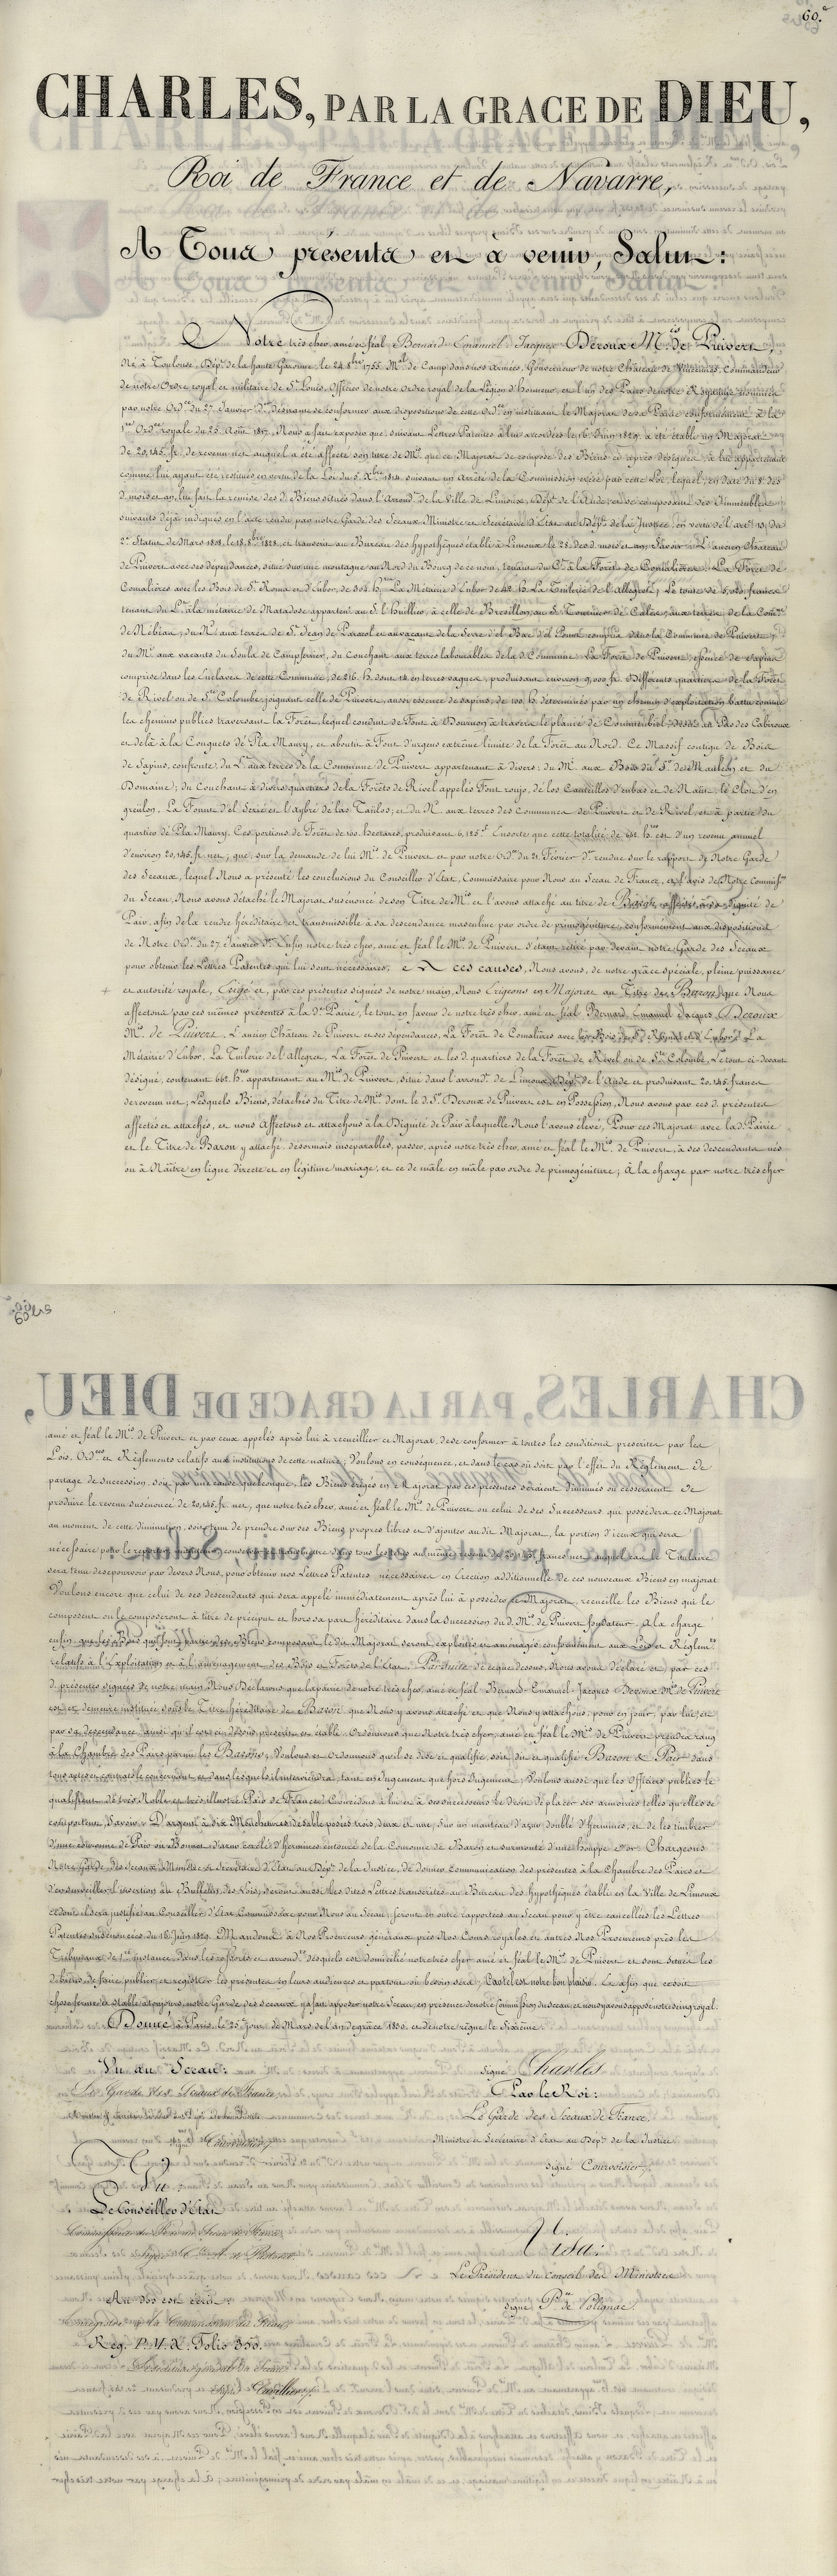 60.e
CHARLES, PAR LA GRACE DE DIEU,
Roi de France et de Navarre,
A Tous présents et à venir, Salut:
Notre très cher, amé et féal, Bernard-Emanuel-Jacques Deroux M.is de Puivert,
Né à Toulouse, Dép.t de la haute Garonne, le 24 8.bre 1755. M.al de Camp dans nos Armées, Gouverneur de notre Château de Vincennes, Commandeur
de notre Ordre royal et militaire de S.t Louis, Officier de notre Ordre royal de la Légion d'honneur, et l'un des Pairs de notre Royaume nommés
par notre Ord.ce du 27 Janvier d.er désirant se conformer aux dispositions de cette Ord.ce en instituant le Majorat de sa Pairie conformément à la
1.ère Ord.ce royale du 25 Août 1817, Nous a fait exposer que, suivant Lettres Patentes à lui accordées le 16 Juin 1829, a été établi un Majorat
de 20,145 fr. de revenu net auquel a été affecté son titre de M.is que ce Majorat se compose des Biens ci après désignés, à lui appartenant
comme lui ayant été restitués en vertu de la Loi du 5 X.bre 1814 suivant un Arrêté de la Commission créée par cette Loi, lequel, en date du 8 des
d. mois et an, lui fait la remise des d. Biens situés dans l'Arrond.t de la Ville de Limoux, Dép.t de l'Aude, et se composant des Immeubles
suivants déjà indiqués en l'acte rendu par notre Garde des Sceaux Ministre et Secrétaire d'État au Dép.t de la Justice, en vertu de l'art. 13 du
2.e Statut de Mars 1808, le 18 8.bre 1828, et transcrit au Bureau des hypothèques établi à Limoux le 28 des d. mois et an; Savoir: L'ancien Château
de Puivert avec ses dépendances, situé sur une montagne au Nord du Bourg de ce nom, tenant du C.t à la Forêt de Comalières. La Forêt de
Comalières avec les Bois de S.t Roma et d'Lubor, de 304 h.res La Métairie d'Lubor de 42 H. La Tuilerie de l'Allegret; Le tout de 5,020 francs
tenant du L.t à la métairie de Matadose appartenant au S. l'huillier, à celle de Bresillon, au S. Tournier de Calère, aux terres de la Com.ne
de Nébias; du N.d aux terres de S.t Jean de Paracol et au vacant de la Serre d'el Bac d'el Pount compris dans la Commune de Puivert;
du M.i aux vacants du Soula de Campferrier, du Couchant aux terres labourables de la d. Commune. La Forêt de Puivert, essence de sapins
comprise dans les Enclaves de cette Commune, de 216 h. dont 14 en terres vagues, produisant environ 9,000 fr. Différents quartiers de la Forêt
de Rivel ou de S.te Colombe, joignant celle de Puivert, aussi essence de sapins, de 100 H. déterminés par un chemin d'exploitation battu comme
les chemins publics traversant la Forêt, lequel conduit de Font à Bournon à travers le plané de au Pas des Cabiroux
et de là à la Conquets de Pla Maury, et aboutit à Font d'urgens extrême limite de la Forêt au Nord. Ce Massif contigu de Bois
de Sapins, confronte, du L.t aux terres de la Commune de Puivert appartenant à divers; du M.i aux Bois du S.r des Mauléon et du
Domaine; du Couchant à divers quartiers de la Forêts de Rivel appelés Font roujo, de los Cauteillos d'embas et de Naut, le Clot d'en
greulon, La Fount d'el Serié et l'aybré de las Taulos; et du N. aux terres des Communes de Puivert et de Rivel, et à partie du
quartier de Pla Maury. Ces portions de Forêt de 100 hectares, produisant 6,125 f. Ensorte que cette totalité de 662 h.res est d'un revenu annuel
d'environ 20,145 fr. net; que, sur la demande de lui M.is de Puivert et par notre Ord.ce du 21 Février d.er rendue sur le rapport de Notre Garde
des Sceaux, lequel Nous a présenté les conclusions du Conseiller d'État, Commissaire pour Nous au Sceau de France, et l'avis de Notre Commis.on
du Sceau, Nous avons détaché le Majorat susénoncé de son Titre de M.is et l'avons attaché au titre de Baron affecté à sa dignité de
Pair, afin de la rendre héréditaire et transmissible à sa descendance masculine par ordre de primogéniture, conformément aux dispositions
de Notre Ord.ce du 27 Janvier d.er Enfin notre très cher, amé et féal le M.is de Puivert s'étant retiré par devant notre Garde des Sceaux
pour obtenir les Lettres Patentes qui lui sont nécessaires; A ces causes, Nous avons, de notre grâce spéciale, pleine puissance
et autorité royale, Érigé et, par ces présentes signées de notre main, Nous Érigeons en Majorat au Titre de Baron que Nous
affectons par ces mêmes présentes à la d. Pairie, le tout en faveur de notre très cher, amé et féal Bernard Emanuel Jacques Deroux
M.is de Puivert, L'ancien Château de Puivert et ses dépendances, La Forêt de Comalières avec les Bois de S.t Roma et d'Lubor, La
Métairie d'Lubor, La Tuilerie de l'Allegret, La Forêt de Puivert et les d. quartiers de la Forêt de Rivel ou de S.te Colombe, Le tout ci-devant
désigné, contenant 662 h.res appartenant au M.is de Puivert, situé dans l'arrond.t de Limoux, Dép.t de l'Aude et produisant 20,145 francs
de revenu net; Lesquels Biens, détachés du Titre de M.is dont le d. S.r Deroux de Puivert est en Possession, Nous avons par ces d. présentes
affectés et attachés, et nous Affectons et attachons à la Dignité de Pair à laquelle Nous l'avons élevé, Pour ces Majorat avec la d. Pairie
et le Titre de Baron y attaché, désormais inséparables, passer, après notre très cher, amé et féal le M.is de Puivert, à ses descendants nés
ou à Naître en ligne directe et en légitime mariage, et ce de mâle en mâle par ordre de primogéniture; À la charge par notre très cher
amé et féal le M.is de Puivert et par ceux appelés après lui à recueillir ce Majorat, de se conformer à toutes les conditions prescrites par les
Lois, Ord.ces et Règlements relatifs aux institutions de cette nature; Voulons en conséquence, et dans le cas où soit par l'effet du Règlement de
partage de succession, soit par une cause quelconque, les Biens érigés en Majorat par ces présentes seraient diminués ou cesseraient de
produire le revenu susénoncé de 20,145 fr. net, que notre très cher, amé et féal le M.is de Puivert ou celui de ses Successeurs qui possédera ce Majorat
au moment de cette diminution, soit tenu de prendre sur ses Biens propres libres et d'ajouter au dit Majorat, la portion d'iceux qui sera
nécessaire pour le reporter, conserver et transmettre dans tous les tems au même revenu de 20,145 francs net, auquel cas le Titulaire
sera tenu de se pourvoir par devers Nous, pour obtenir nos Lettres Patentes nécessaires en Érection additionnelle de ces nouveaux Biens en majorat
Voulons encore que celui de ses descendants qui sera appelé immédiatement après lui à posséder ce Majorat, recueille les Biens qui le
composent ou le composeront à titre de préciput et hors sa part héréditaire dans la Succession du d. M.is de Puivert fondateur. A la charge
enfin que les Bois qui font partie des Biens composant le dit Majorat seront exploités et aménagés conformément aux Lois et Réglem.ts
relatifs à l'Exploitation et à l'aménagement des Bois et Forêts de l'État. Par suite de ce que dessus, Nous avons déclaré et, par ces
d. présentes signées de notre main, Nous Déclarons que la pairie de notre très cher, amé et féal Bernard-Emanuel-Jacques Deroux M.is de Puivert
est et demeure instituée sous le Titre héréditaire de Baron que Nous y avons attaché et que Nous y attachons, pour en jouir, par lui et
par sa descendance ainsi qu'il est ci-dessus prescrit et établi. Ordonnons que Notre très cher, amé et féal le M.is de Puivert prendra rang
à la Chambre des Pairs parmi les Barons; Voulons et Ordonnons qu'il se dise et qualifie, soit dit et qualifié Baron & Pair dans
tous actes et contrats le concernant et dans lesquels il interviendra, tant en Jugement que hors Jugement. Voulons aussi que les Officiers publics le
qualifient de très Noble et très illustre Pair de France; Concédons à lui et à ses successeurs le droit de placer ses armoiries telles qu'elles se
comportent, Savoir: D'argent à dix Mouchetures de sable posées trois, deux et une, Sur un manteau d'azur doublé d'hermines, et de les timbrer
d'une couronne de Pair ou Bonnet d'azur cerclé d'hermines entourée de la Couronne de Baron et surmonté d'une houppe d'or. Chargeons
Notre Garde des Sceaux, Ministre et Secrétaire d'État au Dép.t de la Justice, de donner Communication des présentes à la Chambre des Pairs et
d'en surveiller l'insertion au Bulletin des Lois; Seront aussi les dites Lettres transcrites au Bureau des hypothèques établi en la Ville de Limoux
ce dont il sera justifié au Conseiller d'État, Commissaire pour Nous au Sceau; seront en outre rapportées au Sceau pour y être cancellées les Lettres
Patentes susénoncées du 16 Juin 1829. Mandons à Nos Procureurs généraux près Nos Cours royales et à tous Nos Procureurs près les
Tribunaux de 1.ère instance dans les ressorts et arrond.ts desquels est domicilié notre très cher amé et féal le M.is de Puivert et sont situés les
d. Biens, de faire publier et registrer les présentes en leurs audiences et partout où besoin sera; Car tel est notre bon plaisir. Et afin que ce soit
chose ferme et stable à toujours, notre Garde des Sceaux y a fait apposer notre Sceau, en présence de notre Commission du sceau, et nous y avons apposé notre seing royal.
Donné à Paris, le 25.e jour de Mars de l'an de grâce 1830, et de notre règne le Sixième.
Vu au Sceau:
Le Garde des Sceaux de France
Signé Courvoisier
Signé Charles
Par le Roi:
Le Garde des Sceaux de France,
Ministre et Secrétaire d'État au Dép.t de la Justice
Signé Courvoisier
Vu:
Le Conseiller d'État
Commissaire du Roi au Sceau de France
Visa:
Le Président du Conseil des Ministres
Signé P.ce de Polignac
Au dos est écrit:
Enregistré à la Commission du Sceau
Reg. P. M. X. Folio 350.
Le Secrétaire général du Sceau
Signé Cuvillier